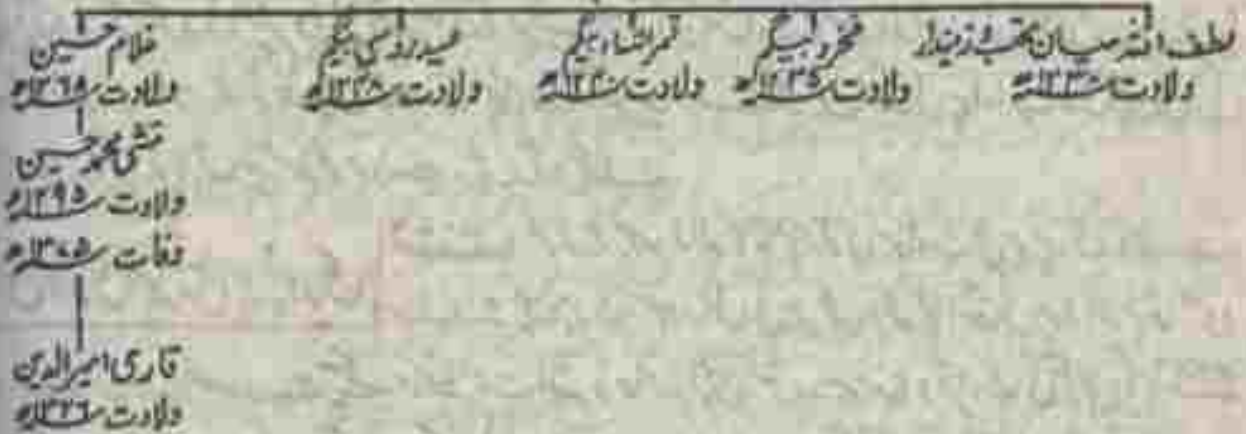 لطف اللہ میاں زمیندار
ولادت ۱۲۳۰ھ
بیگم
ولادت ۱۲۳۵ھ
قمر النساء بیگم
ولادت ۱۲۴۰ھ
بیگم
ولادت
غلام حسین
ولادت ۱۲۶۵ھ
منشی محمد حسین
ولادت ۱۲۹۵ھ
وفات ۱۳۷۵ھ
قاری امیرالدین
ولادت ۱۳۲۶ھ